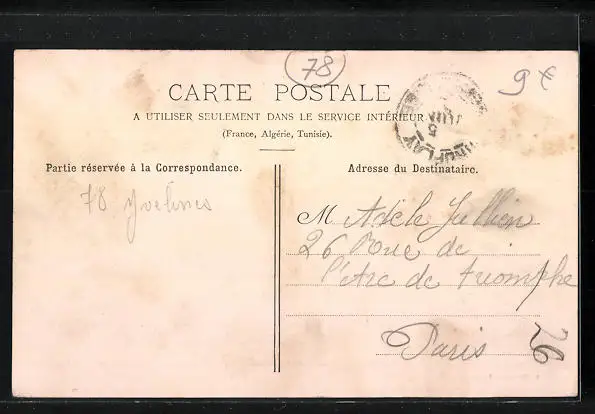 78
9 €
CARTE POSTALE
A UTILISER SEULEMENT DANS LE SERVICE INTÉRIEUR
(France, Algérie, Tunisie).
Partie réservée à la Correspondance.
Adresse du Destinataire.
78 Yvelines
M Adèle Jullien
26 Rue de
l'Arc de triomphe
Paris
26